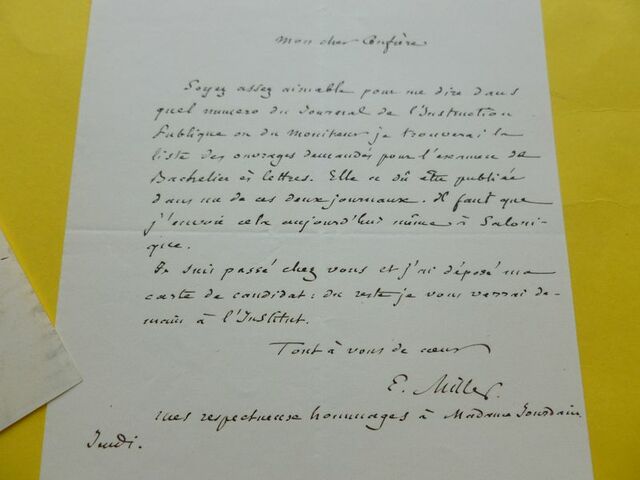 Mon cher Confrère
Soyez assez aimable pour me dire dans
quel numero du Journal de l'Instruction
Publique ou du Moniteur je trouverai la
liste des ouvrages demandés pour l'examen de
Bachelier ès lettres. Elle a dû être publiée
dans un de ces deux journaux. Il faut que
j'envoie cela aujourd'hui même à Saloni-
que.
Je suis passé chez vous et j'ai déposé ma
carte de candidat: du reste je vous verrai de-
main à l'Institut.
Tout à vous de cœur
E. Miller.
mes respectueux hommages à Madame Jourdain
Jeudi.